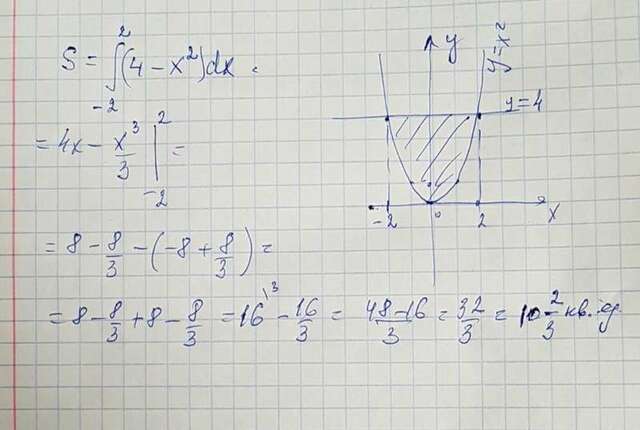 S = ∫₋₂² (4 - x²)dx =
= 4x - x³/3 |₋₂² =
= 8 - 8/3 - (-8 + 8/3) =
= 8 - 8/3 + 8 - 8/3 = 16^\3 - 16/3 = (48-16)/3 = 32/3 = 10 2/3 кв. ед.
y
y=x²
y=4
-2 0 2 x